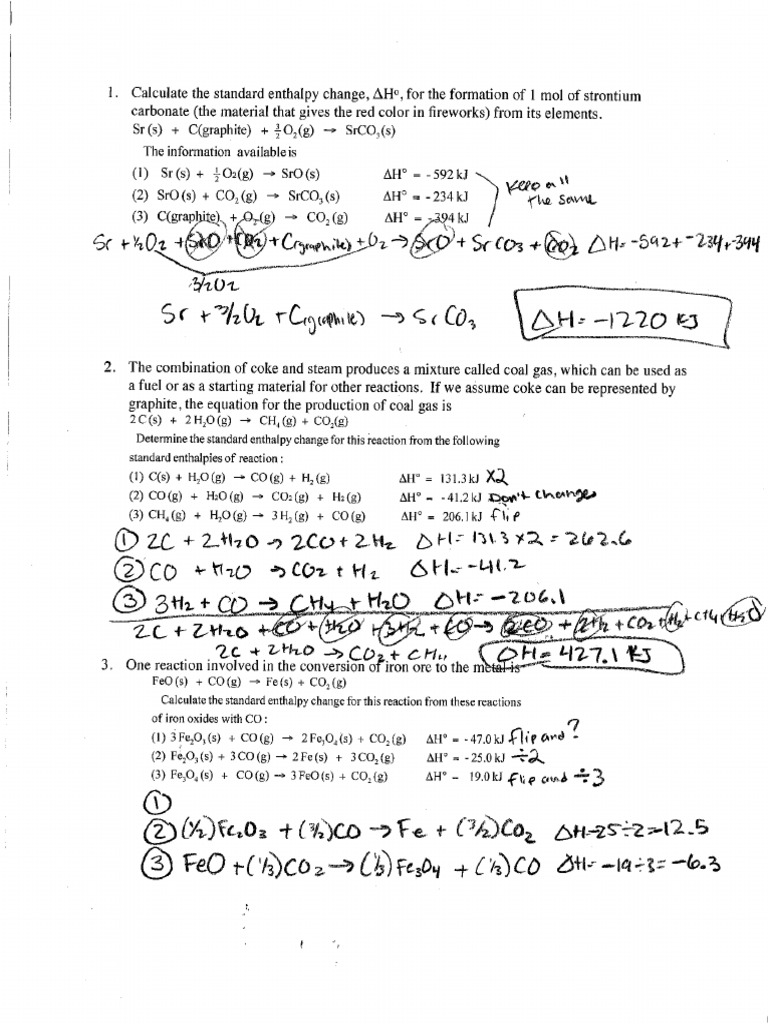 1. Calculate the standard enthalpy change, ΔHº, for the formation of 1 mol of strontium
carbonate (the material that gives the red color in fireworks) from its elements.
Sr (s) + C(graphite) + 3/2 O₂(g) → SrCO₃(s)
The information available is
(1) Sr (s) + ½ O₂(g) → SrO (s) ΔH° = - 592 kJ
(2) SrO (s) + CO₂ (g) → SrCO₃ (s) ΔH° = - 234 kJ
(3) C(graphite) + O₂(g) → CO₂ (g) ΔH° = -394 kJ
Keep all
the same
Sr + ½O₂ + SrO + CO₂ + C(graphite) + O₂ → SrO + SrCO₃ + CO₂ ΔH= -592+ -234+-394
3/2O₂
Sr + 3/2O₂ + C(graphite) → SrCO₃ ΔH= -1220 KJ
2. The combination of coke and steam produces a mixture called coal gas, which can be used as
a fuel or as a starting material for other reactions. If we assume coke can be represented by
graphite, the equation for the production of coal gas is
2 C (s) + 2 H₂O (g) → CH₄ (g) + CO₂(g)
Determine the standard enthalpy change for this reaction from the following
standard enthalpies of reaction :
(1) C(s) + H₂O (g) → CO (g) + H₂ (g) ΔH° = 131.3 kJ X2
(2) CO (g) + H₂O (g) → CO₂ (g) + H₂ (g) ΔH° = - 41.2 kJ Don't change
(3) CH₄ (g) + H₂O (g) → 3 H₂ (g) + CO (g) ΔH° = 206.1 kJ flip
① 2C + 2H₂O → 2CO + 2H₂ ΔH= 131.3 x2 = 262.6
② CO + H₂O → CO₂ + H₂ ΔH= -41.2
③ 3H₂ + CO → CH₄ + H₂O ΔH= -206.1
2C + 2H₂O + CO + H₂O + 3H₂ + CO → 2CO + 2H₂ + CO₂ + H₂ + CH₄ + H₂O
2C + 2H₂O → CO₂ + CH₄ ΔH= 427.1 KJ
3. One reaction involved in the conversion of iron ore to the metal is
FeO (s) + CO (g) → Fe (s) + CO₂ (g)
Calculate the standard enthalpy change for this reaction from these reactions
of iron oxides with CO :
(1) 3 Fe₂O₃ (s) + CO (g) → 2 Fe₃O₄ (s) + CO₂ (g) ΔH° = - 47.0 kJ flip and ?
(2) Fe₂O₃ (s) + 3 CO (g) → 2 Fe (s) + 3 CO₂ (g) ΔH° = - 25.0 kJ ÷2
(3) Fe₃O₄ (s) + CO (g) → 3 FeO (s) + CO₂ (g) ΔH° = 19.0 kJ flip and ÷3
①
② (½)Fe₂O₃ + (3/2)CO → Fe + (3/2)CO₂ ΔH=-25÷2=-12.5
③ FeO + (1/3)CO₂ → (1/3)Fe₃O₄ + (1/3)CO ΔH= -19÷3= -6.3